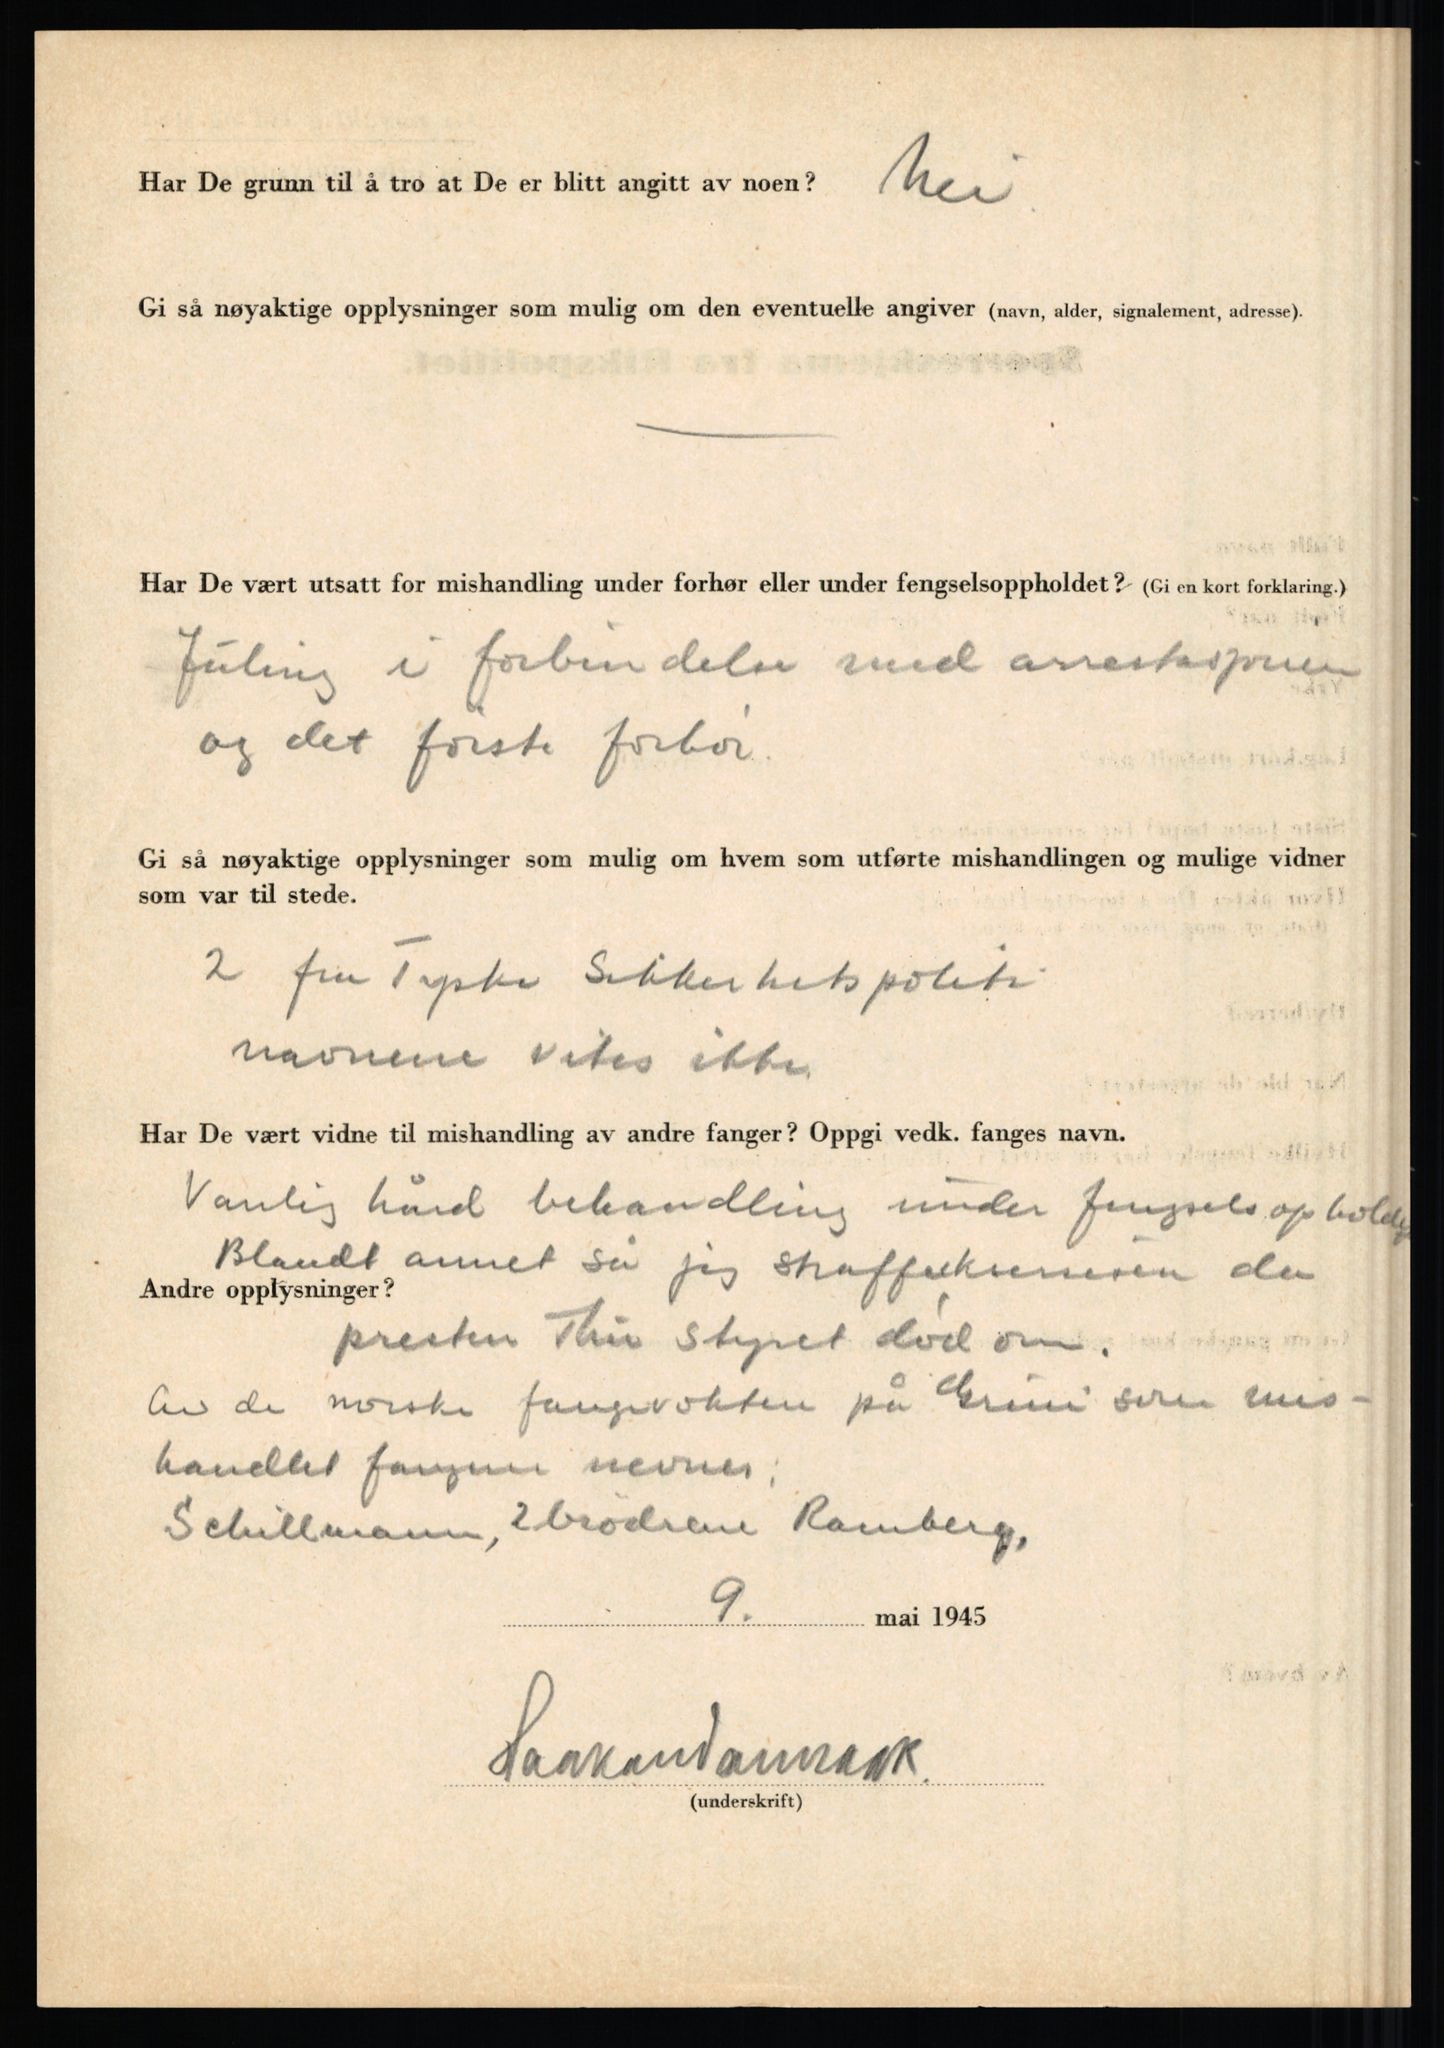 Har De grunn til å tro at De er blitt angitt av noen? Nei.
Gi så nøyaktige opplysninger som mulig om den eventuelle angiver (navn, alder, signalement, adresse).
Har De vært utsatt for mishandling under forhør eller under fengselsoppholdet? (Gi en kort forklaring.)
Juling i forbindelse med arrestasjonen
og det første forhør.
Gi så nøyaktige opplysninger som mulig om hvem som utførte mishandlingen og mulige vidner
som var til stede.
2 fra Tyske Sikkerhetspoliti
navnene vites ikke.
Har De vært vidne til mishandling av andre fanger? Oppgi vedk. fanges navn.
Vanlig hård behandling under fengselsopholdet
Blandt annet så jeg straffeksersisen da
Andre opplysninger?
presten Thu styret död om.
Av de norske fangevokten på Grini som mis-
handlet fangene nevnes:
Schillmann, 2 brödrene Ramberg,
9. mai 1945
Haakon Danmark.
(underskrift)